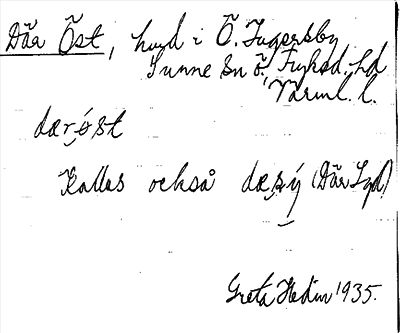 Där Öst, hmd i Ö. Ingersby
Sunne sn Ö. Fryksd. hd
Värml. l.
dær öst
Kallas också dæ sý (Där Syd)
Greta Hedin 1935.